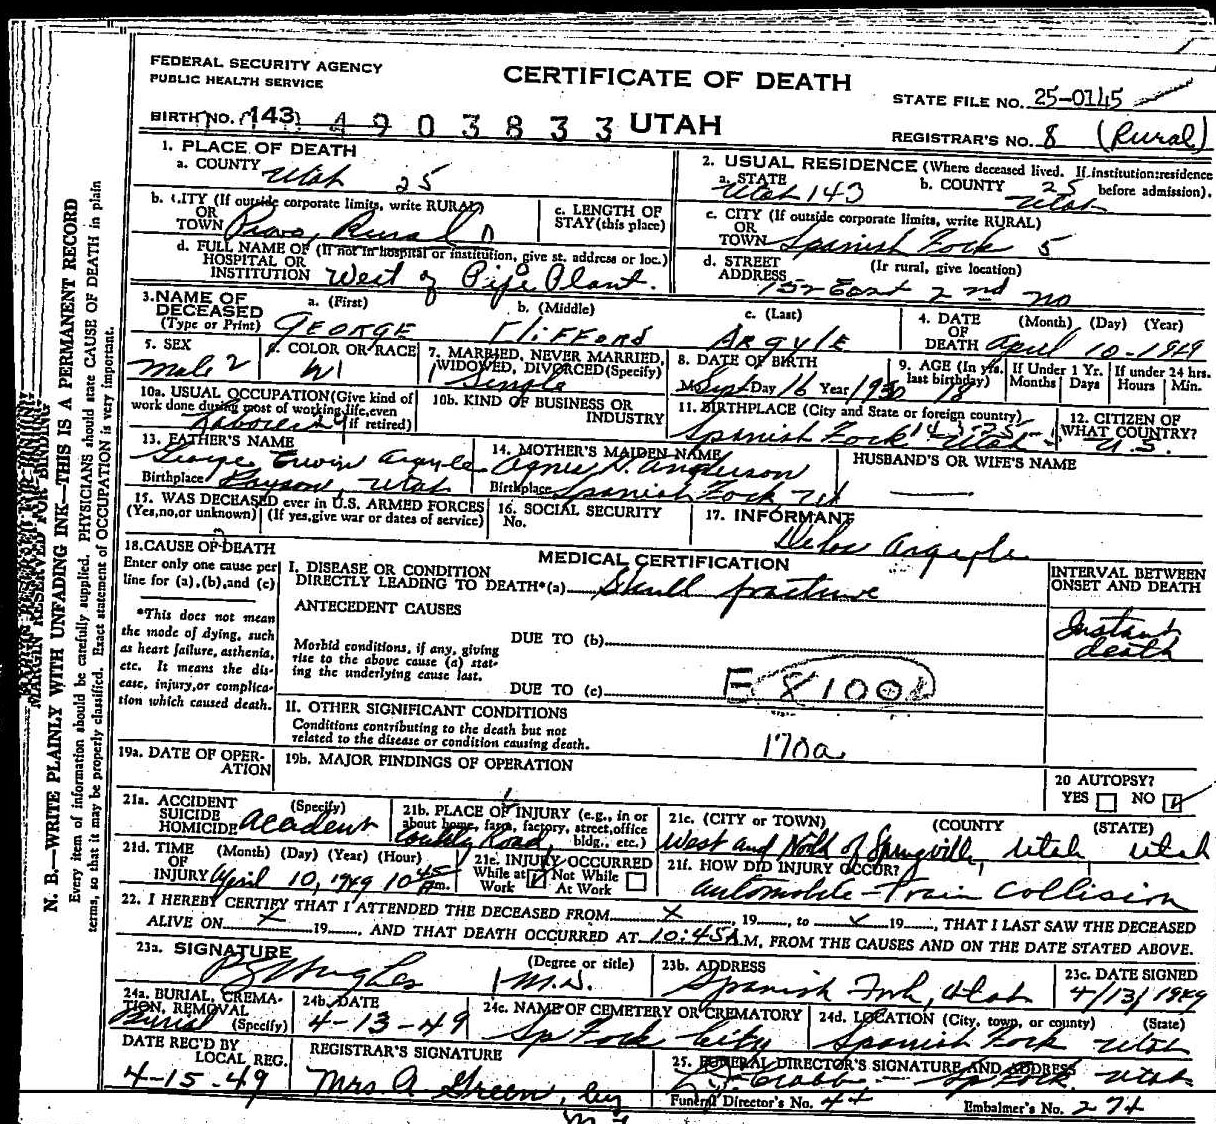 FEDERAL SECURITY AGENCY
PUBLIC HEALTH SERVICE
CERTIFICATE OF DEATH
STATE FILE NO. 25-0145
BIRTH NO. 143 4903833 UTAH
REGISTRAR'S NO. 8 (Rural)
1. PLACE OF DEATH
a. COUNTY Utah 25
2. USUAL RESIDENCE (Where deceased lived. If institution: residence before admission).
a. STATE Utah 143 b. COUNTY 25 Utah
b. CITY (If outside corporate limits, write RURAL)
OR
TOWN Provo, Rural 0
c. LENGTH OF
STAY (this place)
c. CITY (If outside corporate limits, write RURAL)
OR
TOWN Spanish Fork 5
d. FULL NAME OF (If not in hospital or institution, give st. address or loc.)
HOSPITAL OR
INSTITUTION West of Pipe Plant.
d. STREET (If rural, give location)
ADDRESS 152 East 2nd no
3. NAME OF DECEASED
(Type or Print)
a. (First) GEORGE
b. (Middle) Clifford
c. (Last) ARGYLE
4. DATE OF DEATH (Month) (Day) (Year)
April 10-1949
5. SEX
Male 2
6. COLOR OR RACE
W1
7. MARRIED, NEVER MARRIED,
WIDOWED, DIVORCED (Specify)
1 Single
8. DATE OF BIRTH
Mo. Sept Day 16 Year 1930
9. AGE (In yrs. last birthday) 18
If Under 1 Yr. Months Days
If under 24 hrs. Hours Min.
10a. USUAL OCCUPATION (Give kind of
work done during most of working life, even
if retired)
Laborer
10b. KIND OF BUSINESS OR
INDUSTRY
11. BIRTHPLACE (City and State or foreign country)
Spanish Fork Utah
12. CITIZEN OF
WHAT COUNTRY?
U.S.
13. FATHER'S NAME
George Erwin Argyle
Birthplace Payson, Utah
14. MOTHER'S MAIDEN NAME
Agnes Anderson
Birthplace Spanish Fork Ut
HUSBAND'S OR WIFE'S NAME
15. WAS DECEASED ever in U.S. ARMED FORCES
(Yes, no, or unknown) (If yes, give war or dates of service)
16. SOCIAL SECURITY
No.
17. INFORMANT
Delos Argyle
18. CAUSE OF DEATH
Enter only one cause per
line for (a), (b), and (c)
*This does not mean
the mode of dying, such
as heart failure, asthenia,
etc. It means the dis-
ease, injury, or complica-
tion which caused death.
MEDICAL CERTIFICATION
I. DISEASE OR CONDITION
DIRECTLY LEADING TO DEATH*(a) Skull fracture
INTERVAL BETWEEN
ONSET AND DEATH
Instant
death
ANTECEDENT CAUSES
Morbid conditions, if any, giving
rise to the above cause (a) stat-
ing the underlying cause last.
DUE TO (b)
DUE TO (c) E 8100
II. OTHER SIGNIFICANT CONDITIONS
Conditions contributing to the death but not
related to the disease or condition causing death.
170a
19a. DATE OF OPER-
ATION
19b. MAJOR FINDINGS OF OPERATION
20 AUTOPSY?
YES NO
21a. ACCIDENT (Specify)
SUICIDE
HOMICIDE Accident
21b. PLACE OF INJURY (e.g., in or
about home, farm, factory, street, office
bldg., etc.)
County Road,
21c. (CITY or TOWN) (COUNTY (STATE)
West and North of Springville, Utah, Utah
21d. TIME (Month) (Day) (Year) (Hour)
OF
INJURY April 10, 1949 10 45 Am.
21e. INJURY OCCURRED
While at Work Not While At Work
21f. HOW DID INJURY OCCUR?
Automobile - Train Collision
22. I HEREBY CERTIFY THAT I ATTENDED THE DECEASED FROM x, 19, to x 19, THAT I LAST SAW THE DECEASED
ALIVE ON x 19, AND THAT DEATH OCCURRED AT 10:45 A M, FROM THE CAUSES AND ON THE DATE STATED ABOVE.
23a. SIGNATURE (Degree or title)
Hughes M.D.
23b. ADDRESS
Spanish Fork, Utah
23c. DATE SIGNED
4/13/1949
24a. BURIAL, CREMA-
TION, REMOVAL
(Specify)
Burial
24b. DATE
4-13-49
24c. NAME OF CEMETERY OR CREMATORY
Sp Fork City
24d. LOCATION (City, town, or county) (State)
Spanish Fork Utah
DATE REC'D BY
LOCAL REG.
4-15-49
REGISTRAR'S SIGNATURE
Mrs A Green, by
25. FUNERAL DIRECTOR'S SIGNATURE AND ADDRESS
Sp Fork Utah
Funeral Director's No. 44
Embalmer's No. 274
MARGIN RESERVED FOR BINDING
N. B.—WRITE PLAINLY WITH UNFADING INK—THIS IS A PERMANENT RECORD
Every item of information should be carefully supplied. PHYSICIANS should state CAUSE OF DEATH in plain
terms, so that it may be properly classified. Exact statement of OCCUPATION is very important.